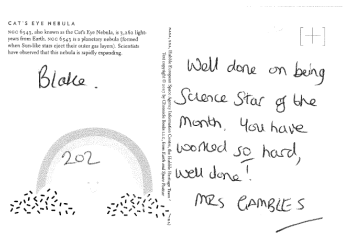 CAT'S EYE NEBULA
NGC 6543, also known as the Cat's Eye Nebula, is 3,262 light-
years from Earth. NGC 6543 is a planetary nebula (formed
when Sun-like stars eject their outer gas layers). Scientists
have observed that this nebula is rapidly expanding.
Blake.
202
Well done on being
Science Star of the
Month. You have
worked so hard,
well done!
MRS GAMBLES